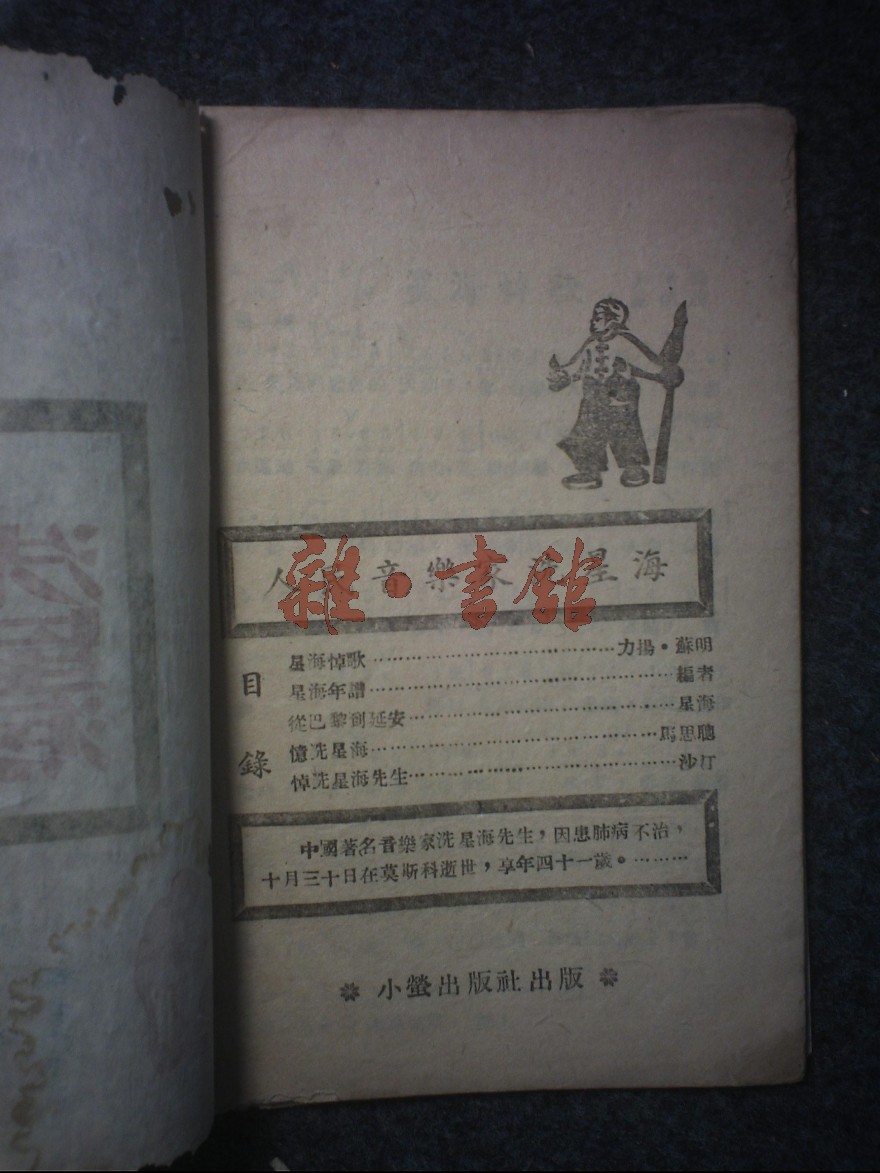 人民音樂家冼星海
雜·書館
目錄
星海悼歌……………………………………力揚·蘇明
星海年譜……………………………………編者
從巴黎到延安……………………………………星海
憶冼星海……………………………………馬思聰
悼冼星海先生……………………………………沙汀
中國著名音樂家冼星海先生，因患肺病不治，
十月三十日在莫斯科逝世，享年四十一歲。………
小螢出版社出版